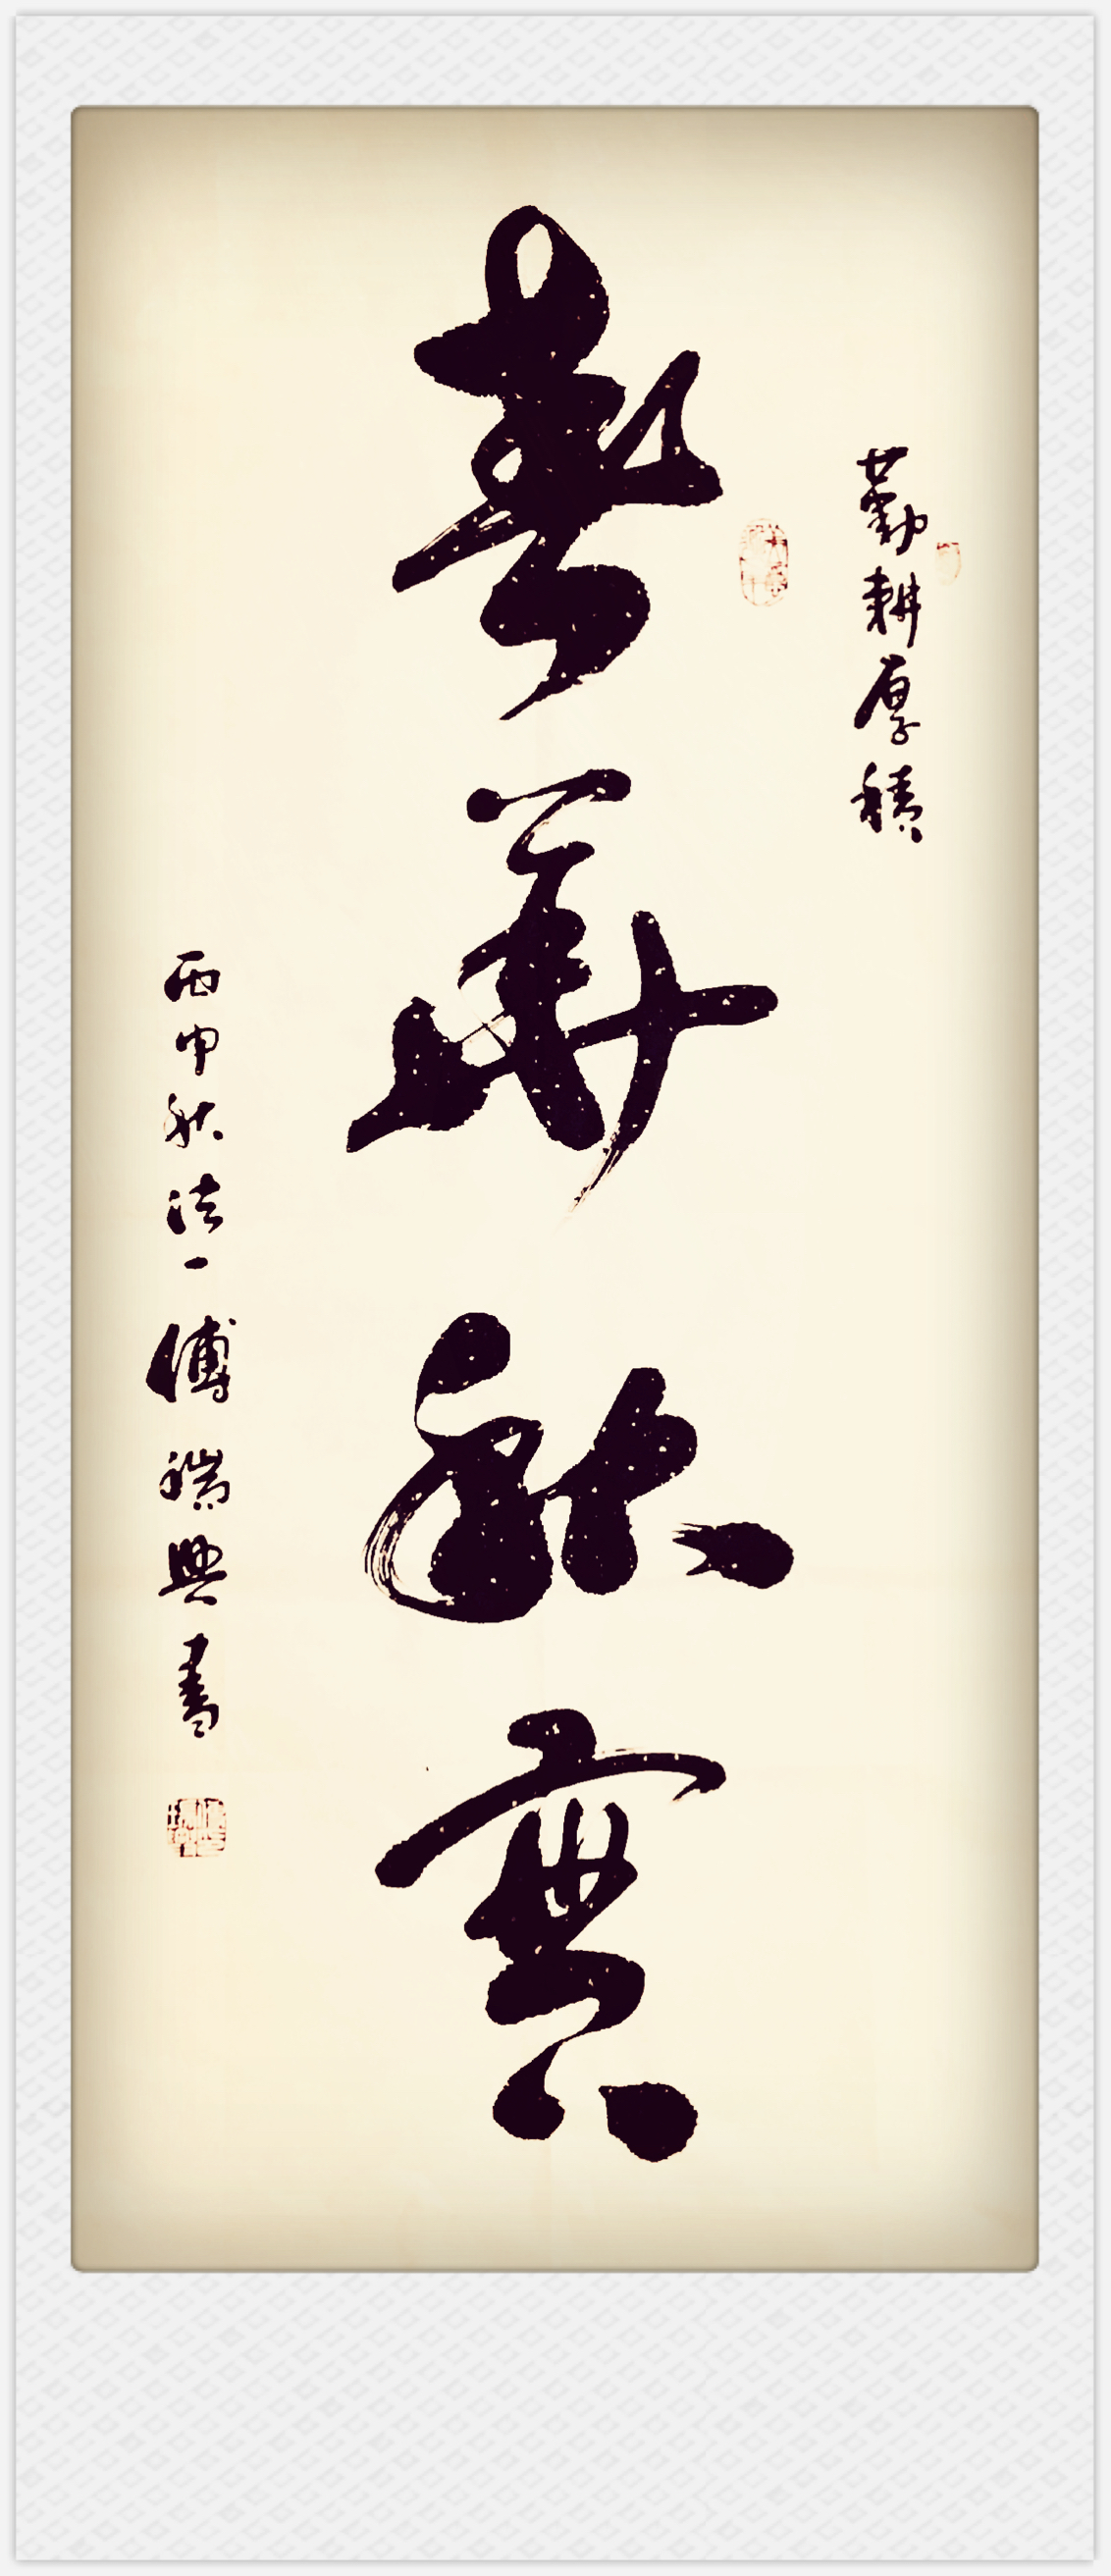 勤耕厚積
春華秋實
丙申秋法一傅瑞興書